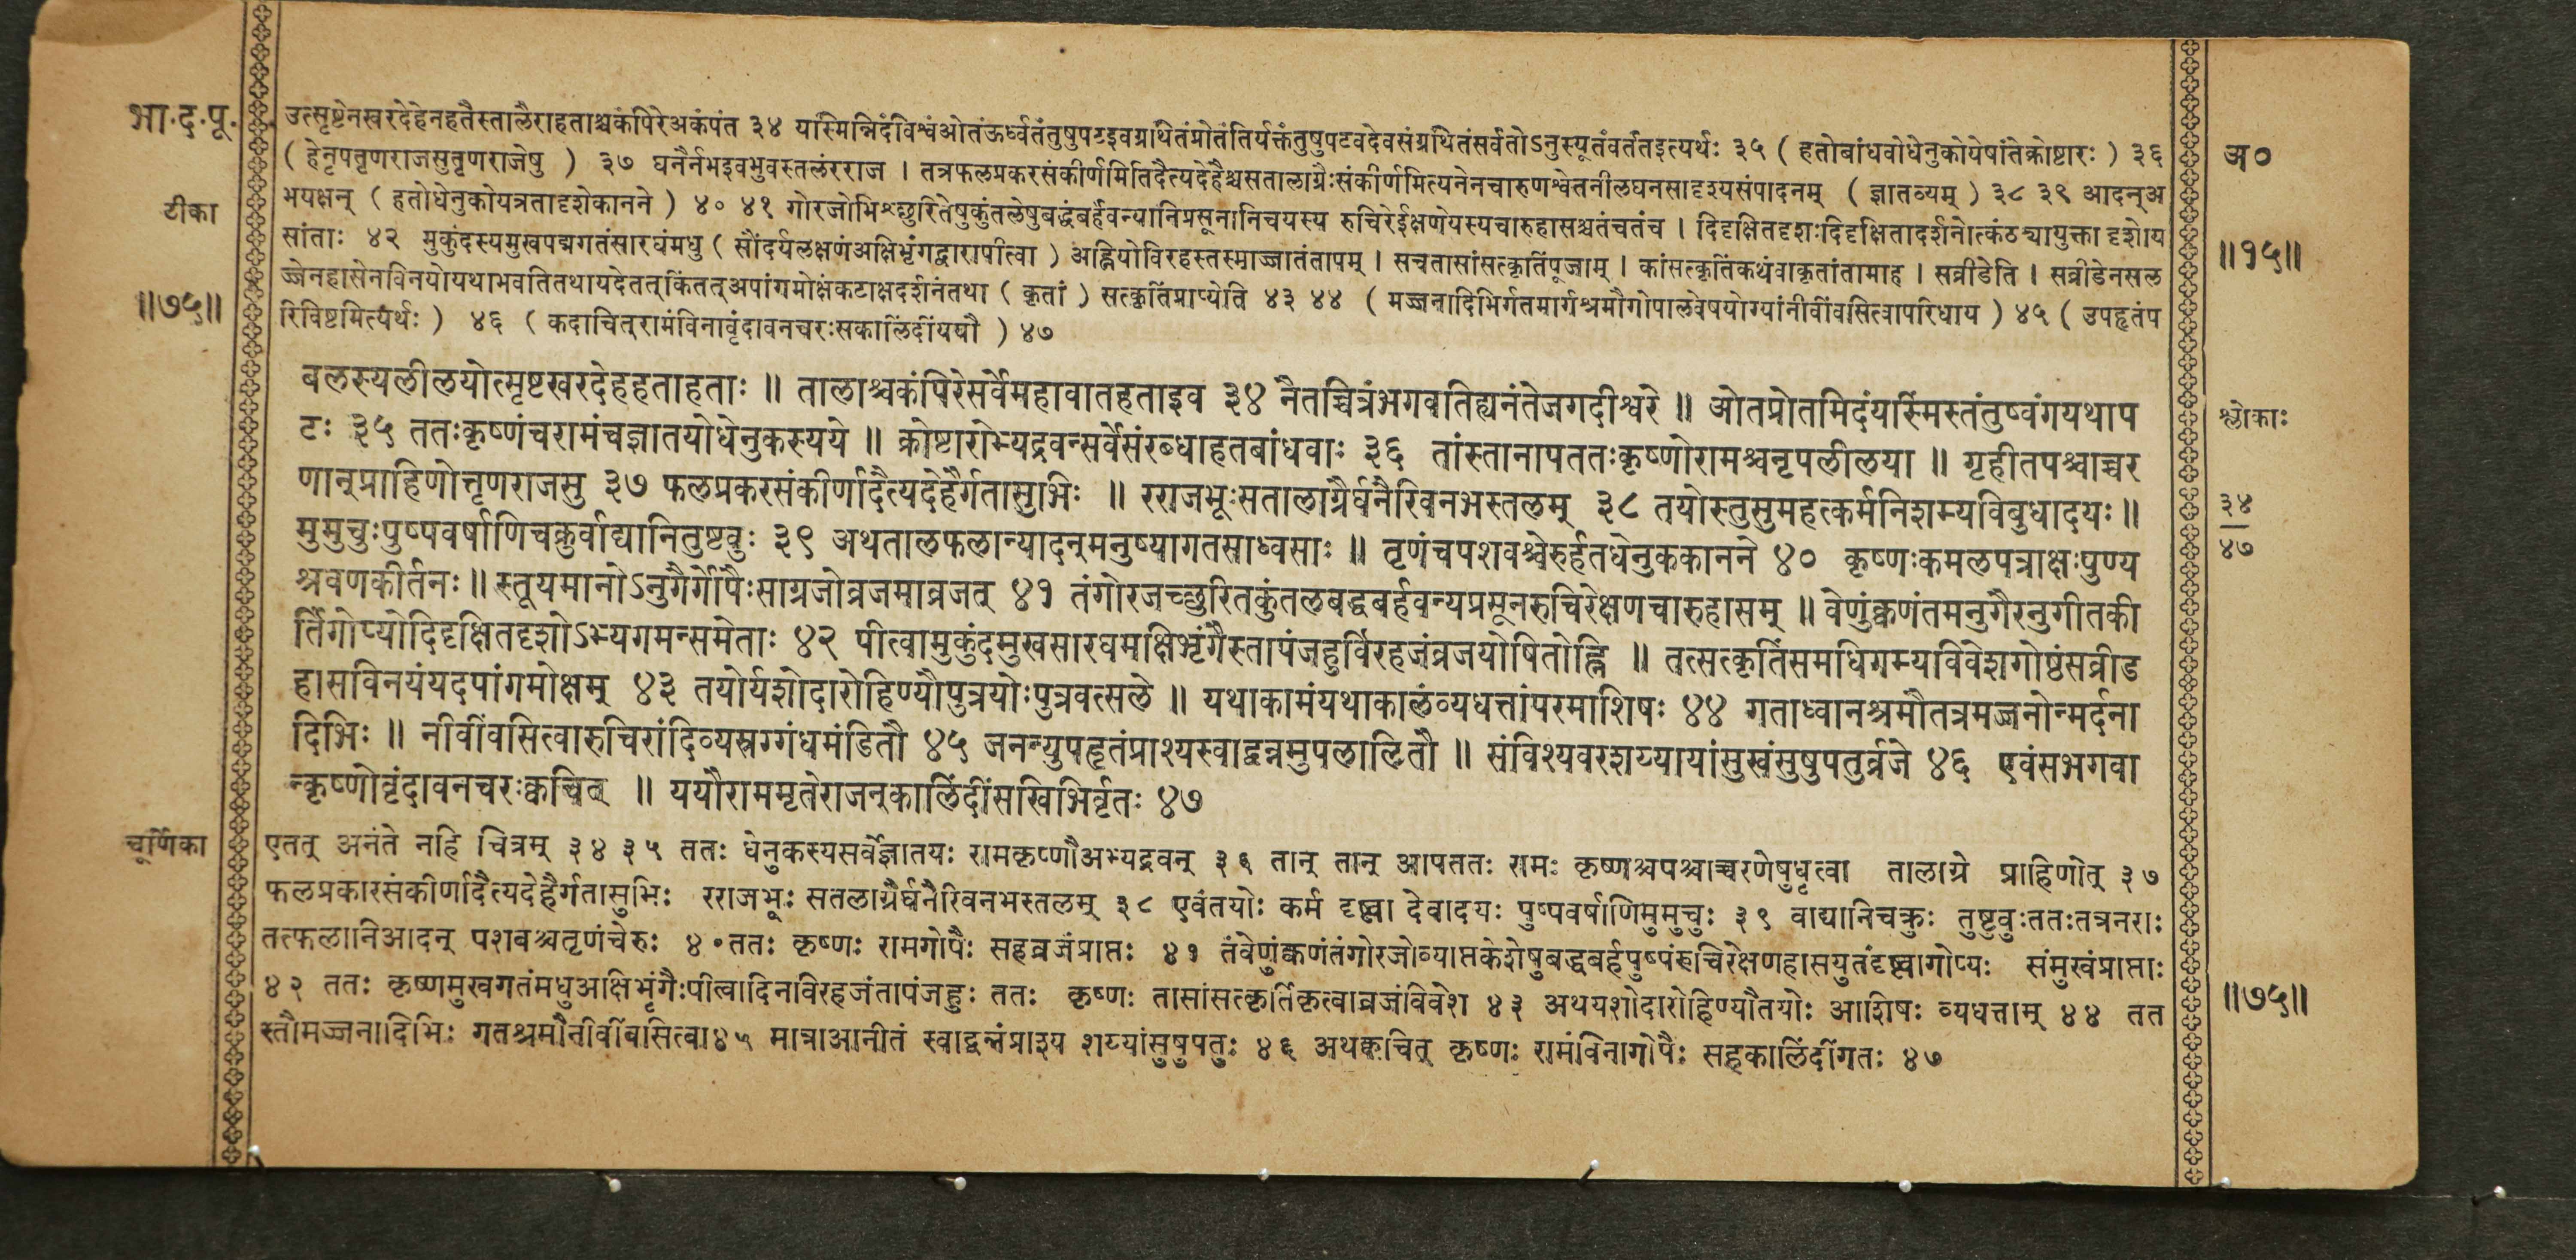 भा.द.पू.
उत्सृष्टेनखरदेहेनहतैस्तालैराहताश्चकंपिरेअकंपंत ३४ यस्मिन्निदंविश्वंओतंऊर्ध्वतंतुषुपटइवग्रथितंप्रोतंतिर्यक्तंतुषुपटवदेवसंग्रथितंसर्वतोऽनुस्यूतंवर्ततइत्यर्थः ३५ ( हतोबांधवोधेनुकोयेषांतेक्रोष्टारः ) ३६
( हेनृपतृणराजसुतृणराजेषु ) ३७ घनैर्नभइवभुवस्तलंरराज । तत्रफलप्रकरसंकीर्णमितिदैत्यदेहैश्चसतालाग्रैःसंकीर्णमित्यनेनचारुणश्वेतनीलघनसादृश्यसंपादनम् ( ज्ञातव्यम् ) ३८ ३९ आदन्अ
अ०
टीका
भयक्षन् ( हतोधेनुकोयत्रतादृशेकानने ) ४० ४१ गोरजोभिश्छुरितेषुकुंतलेषुबद्धंबर्हंवन्यानिप्रसूनानिचयस्य रुचिरेईक्षणेयस्यचारुहासश्चतंचतंच । दिदृक्षितदृशःदिदृक्षितादर्शनोत्कंठ्यायुक्ता दृशोय
सांताः ४२ मुकुंदस्यमुखपद्मगतंसारघंमधु ( सौंदर्यलक्षणंअक्षिभृंगद्वारापीत्वा ) अह्नियोविरहस्तस्माज्जातंतापम् । सचतासांसत्कृतिंपूजाम् । कांसत्कृतिंकथंवाकृतांतामाह । सव्रीडेति । सव्रीडेनसल
॥१५॥
॥७५॥
ज्जेनहासेनविनयोयथाभवतितथायदेतत्किंतत्अपांगमोक्षंकटाक्षदर्शनंतथा ( कृतां ) सत्कृतिंप्राप्येति ४३ ४४ ( मज्जनादिभिर्गतमार्गश्रमौगोपालवेषयोग्यांनीवींवसित्वापरिधाय ) ४५ ( उपहृतंप
रिविष्टमित्यर्थः ) ४६ ( कदाचित्रामंविनावृंदावनचरःसकालिंदींययौ ) ४७
बलस्यलीलयोत्सृष्टखरदेहहताहताः ॥ तालाश्चकंपिरेसर्वेमहावातहताइव ३४ नैतच्चित्रंभगवतिह्यनंतेजगदीश्वरे ॥ ओतप्रोतमिदंयस्मिंस्तंतुष्वंगयथाप
श्लोकाः
टः ३५ ततःकृष्णंचरामंचज्ञातयोधेनुकस्यये ॥ क्रोष्टारोभ्यद्रवन्सर्वेसंरब्धाहतबांधवाः ३६ तांस्तानापततःकृष्णोरामश्चनृपलीलया ॥ गृहीतपश्चाच्चर
णान्प्राहिणोत्तृणराजसु ३७ फलप्रकरसंकीर्णादैत्यदेहैर्गतासुभिः ॥ रराजभूःसतालाग्रैर्घनैरिवनभस्तलम् ३८ तयोस्तुसुमहत्कर्मनिशम्यविबुधादयः ॥
३४
४७
मुमुचुःपुष्पवर्षाणिचक्रुर्वाद्यानितुष्टवुः ३९ अथतालफलान्यादन्मनुष्यागतसाध्वसाः ॥ तृणंचपशवश्चेरुर्हतधेनुककानने ४० कृष्णःकमलपत्राक्षःपुण्य
श्रवणकीर्तनः ॥ स्तूयमानोऽनुगैर्गोपैःसाग्रजोव्रजमाव्रजत् ४१ तंगोरजच्छुरितकुंतलबद्धबर्हवन्यप्रसूनरुचिरेक्षणचारुहासम् ॥ वेणुंक्वणंतमनुगैरनुगीतकी
र्तिंगोप्योदिदृक्षितदृशोऽभ्यगमन्समेताः ४२ पीत्वामुकुंदमुखसारघमक्षिभृंगैस्तापंजहुर्विरहजंव्रजयोषितोह्नि ॥ तत्सत्कृतिंसमधिगम्यविवेशगोष्ठंसव्रीड
हासविनयंयदपांगमोक्षम् ४३ तयोर्यशोदारोहिण्यौपुत्रयोःपुत्रवत्सले ॥ यथाकामंयथाकालंव्यधत्तांपरमाशिषः ४४ गताध्वानश्रमौतत्रमज्जनोन्मर्दना
दिभिः ॥ नीवींवसित्वारुचिरांदिव्यस्रग्गंधमंडितौ ४५ जनन्युपहृतंप्राश्यस्वाद्वन्नमुपलालितौ ॥ संविश्यवरशय्यायांसुखंसुषुपतुर्व्रजे ४६ एवंसभगवा
न्कृष्णोवृंदावनचरःक्वचित् ॥ ययौराममृतेराजन्कालिंदींसखिभिर्वृतः ४७
चूर्णिका
एतत् अनंते नहि चित्रम् ३४ ३५ ततः धेनुकस्यसर्वेज्ञातयः रामकृष्णौअभ्यद्रवन् ३६ तान् तान् आपततः रामः कृष्णश्चपश्चाच्चरणेषुधृत्वा तालाग्रे प्राहिणोत् ३७
फलप्रकारसंकीर्णादैत्यदेहैर्गतासुभिः रराजभूः सतलाग्रैर्घनैरिवनभस्तलम् ३८ एवंतयोः कर्म दृष्ट्वा देवादयः पुष्पवर्षाणिमुमुचुः ३९ वाद्यानिचक्रुः तुष्टुवुःततःतत्रनराः
तत्फलानिआदन् पशवश्चतृणंचेरुः ४० ततः कृष्णः रामगोपैः सहव्रजंप्राप्तः ४१ तंवेणुंक्वणंतंगोरजोव्याप्तकेशेषुबद्धबर्हपुष्पंरुचिरेक्षणहासयुतंदृष्ट्वागोप्यः संमुखंप्राप्ताः
४२ ततः कृष्णमुखगतंमधुअक्षिभृंगैःपीत्वादिनविरहजंतापंजहुः ततः कृष्णः तासांसत्कृतिंकृत्वाव्रजंविवेश ४३ अथयशोदारोहिण्यौतयोः आशिषः व्यधत्ताम् ४४ तत
॥७५॥
स्तौमज्जनादिभिः गतश्रमौनीवींवासित्वा४५ मात्राआनीतं स्वाद्वन्नंप्राश्य शय्यांसुषुपतुः ४६ अथक्वचित् कृष्णः रामंविनागोपैः सहकालिंदींगतः ४७